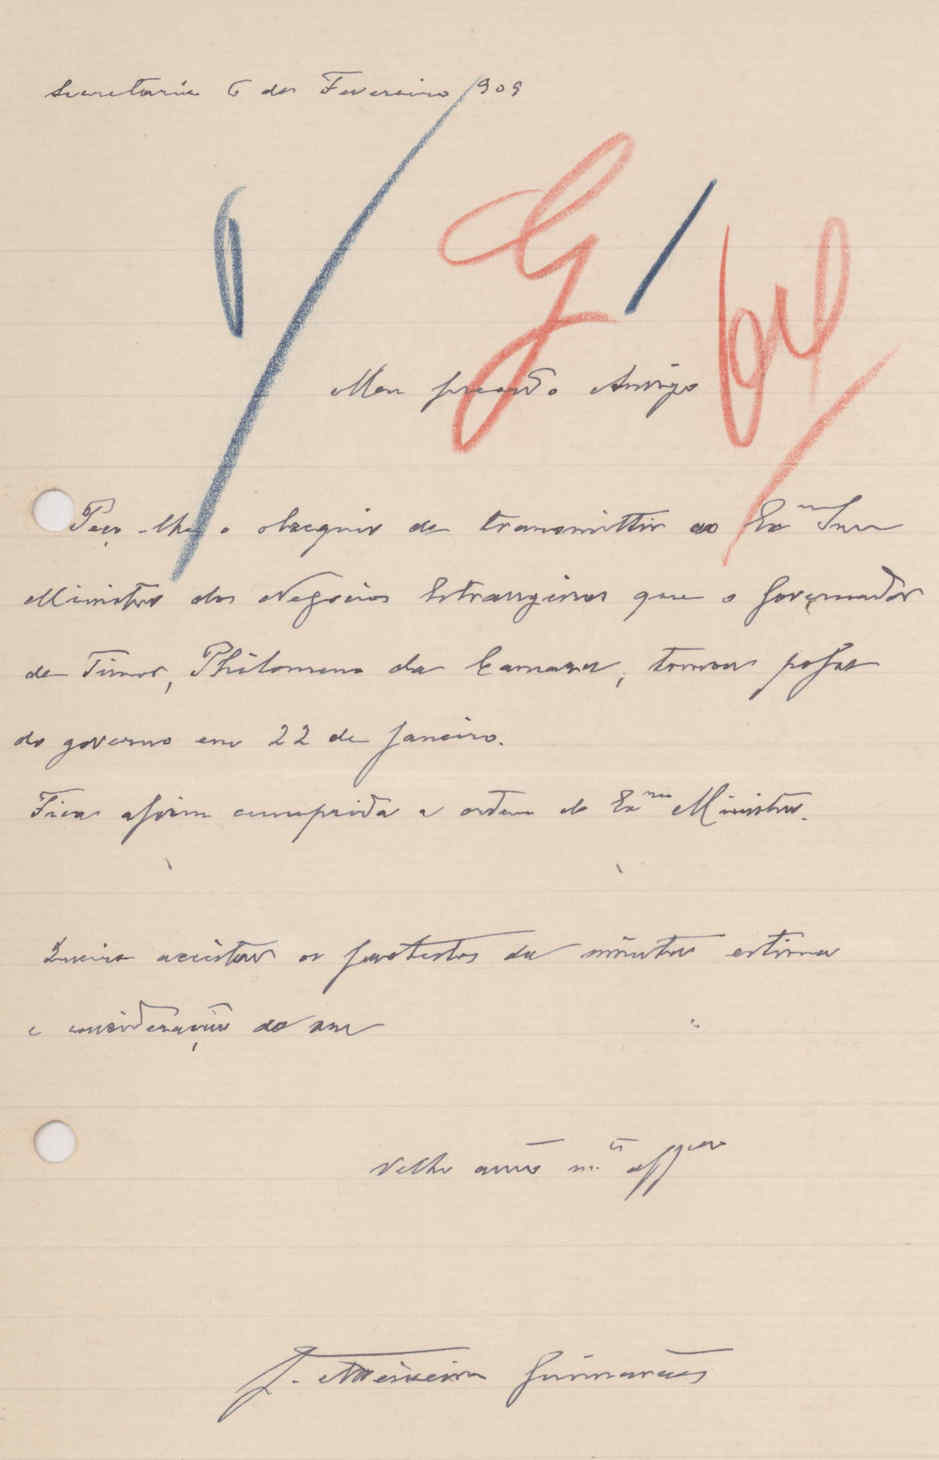 Secretaria 6 de Fevereiro 1909
Meu prezado Amigo
Peço-lhe o obsequio de transmittir ao Exmo Snr
Ministro dos Negocios Estrangeiros que o Governador
de Timor, Philomeno da Camara, tomou posse
do governo em 22 de Janeiro.
Fica assim cumprida a ordem do Exmo Ministro.
Queira acceitar os protestos da muita estima
e consideração do seu
Velho amo m.to affçoado
J. Teixeira Guimarães